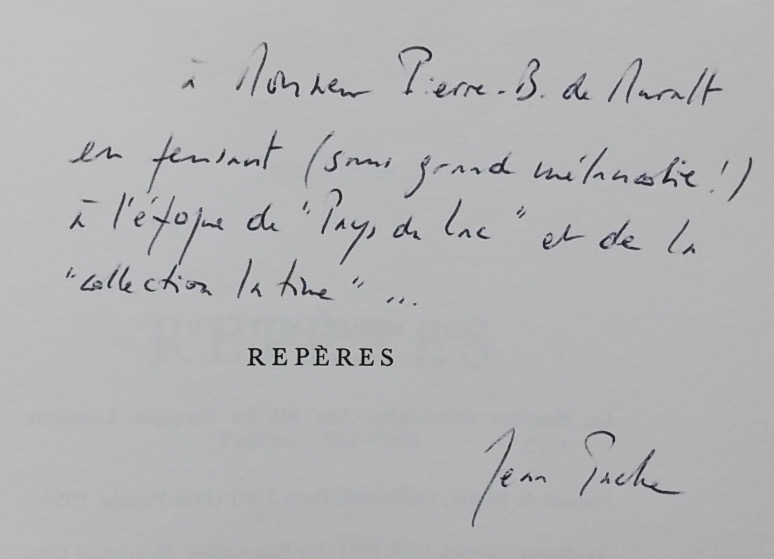 à Monsieur Pierre-B. de Muralt
en pensant (sans grande mélancolie!)
à l'époque de "Pays du Lac" et de la
"collection latine" ...
REPÈRES
Jean Pache